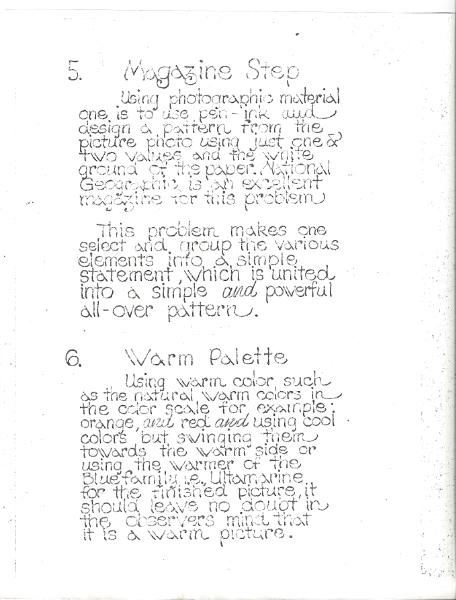 5. Magazine Step
Using photographic material
one is to use pen-ink and
design a pattern from the
picture photo using just one &
two values and the white
ground of the paper. National
Geographic is an excellent
magazine for this problem
This problem makes one
select and group the various
elements into a simple
statement, which is united
into a simple and powerful
all-over pattern.
6. Warm Palette
Using warm color, such
as the natural warm colors in
the color scale for, example:
orange, and red and using cool
colors but swinging them
towards the warm side or
using the warmer of the
Blue family i.e., Ultamarine.
for the finished picture, it
should leave no doubt in
the observers mind that
it is a warm picture.